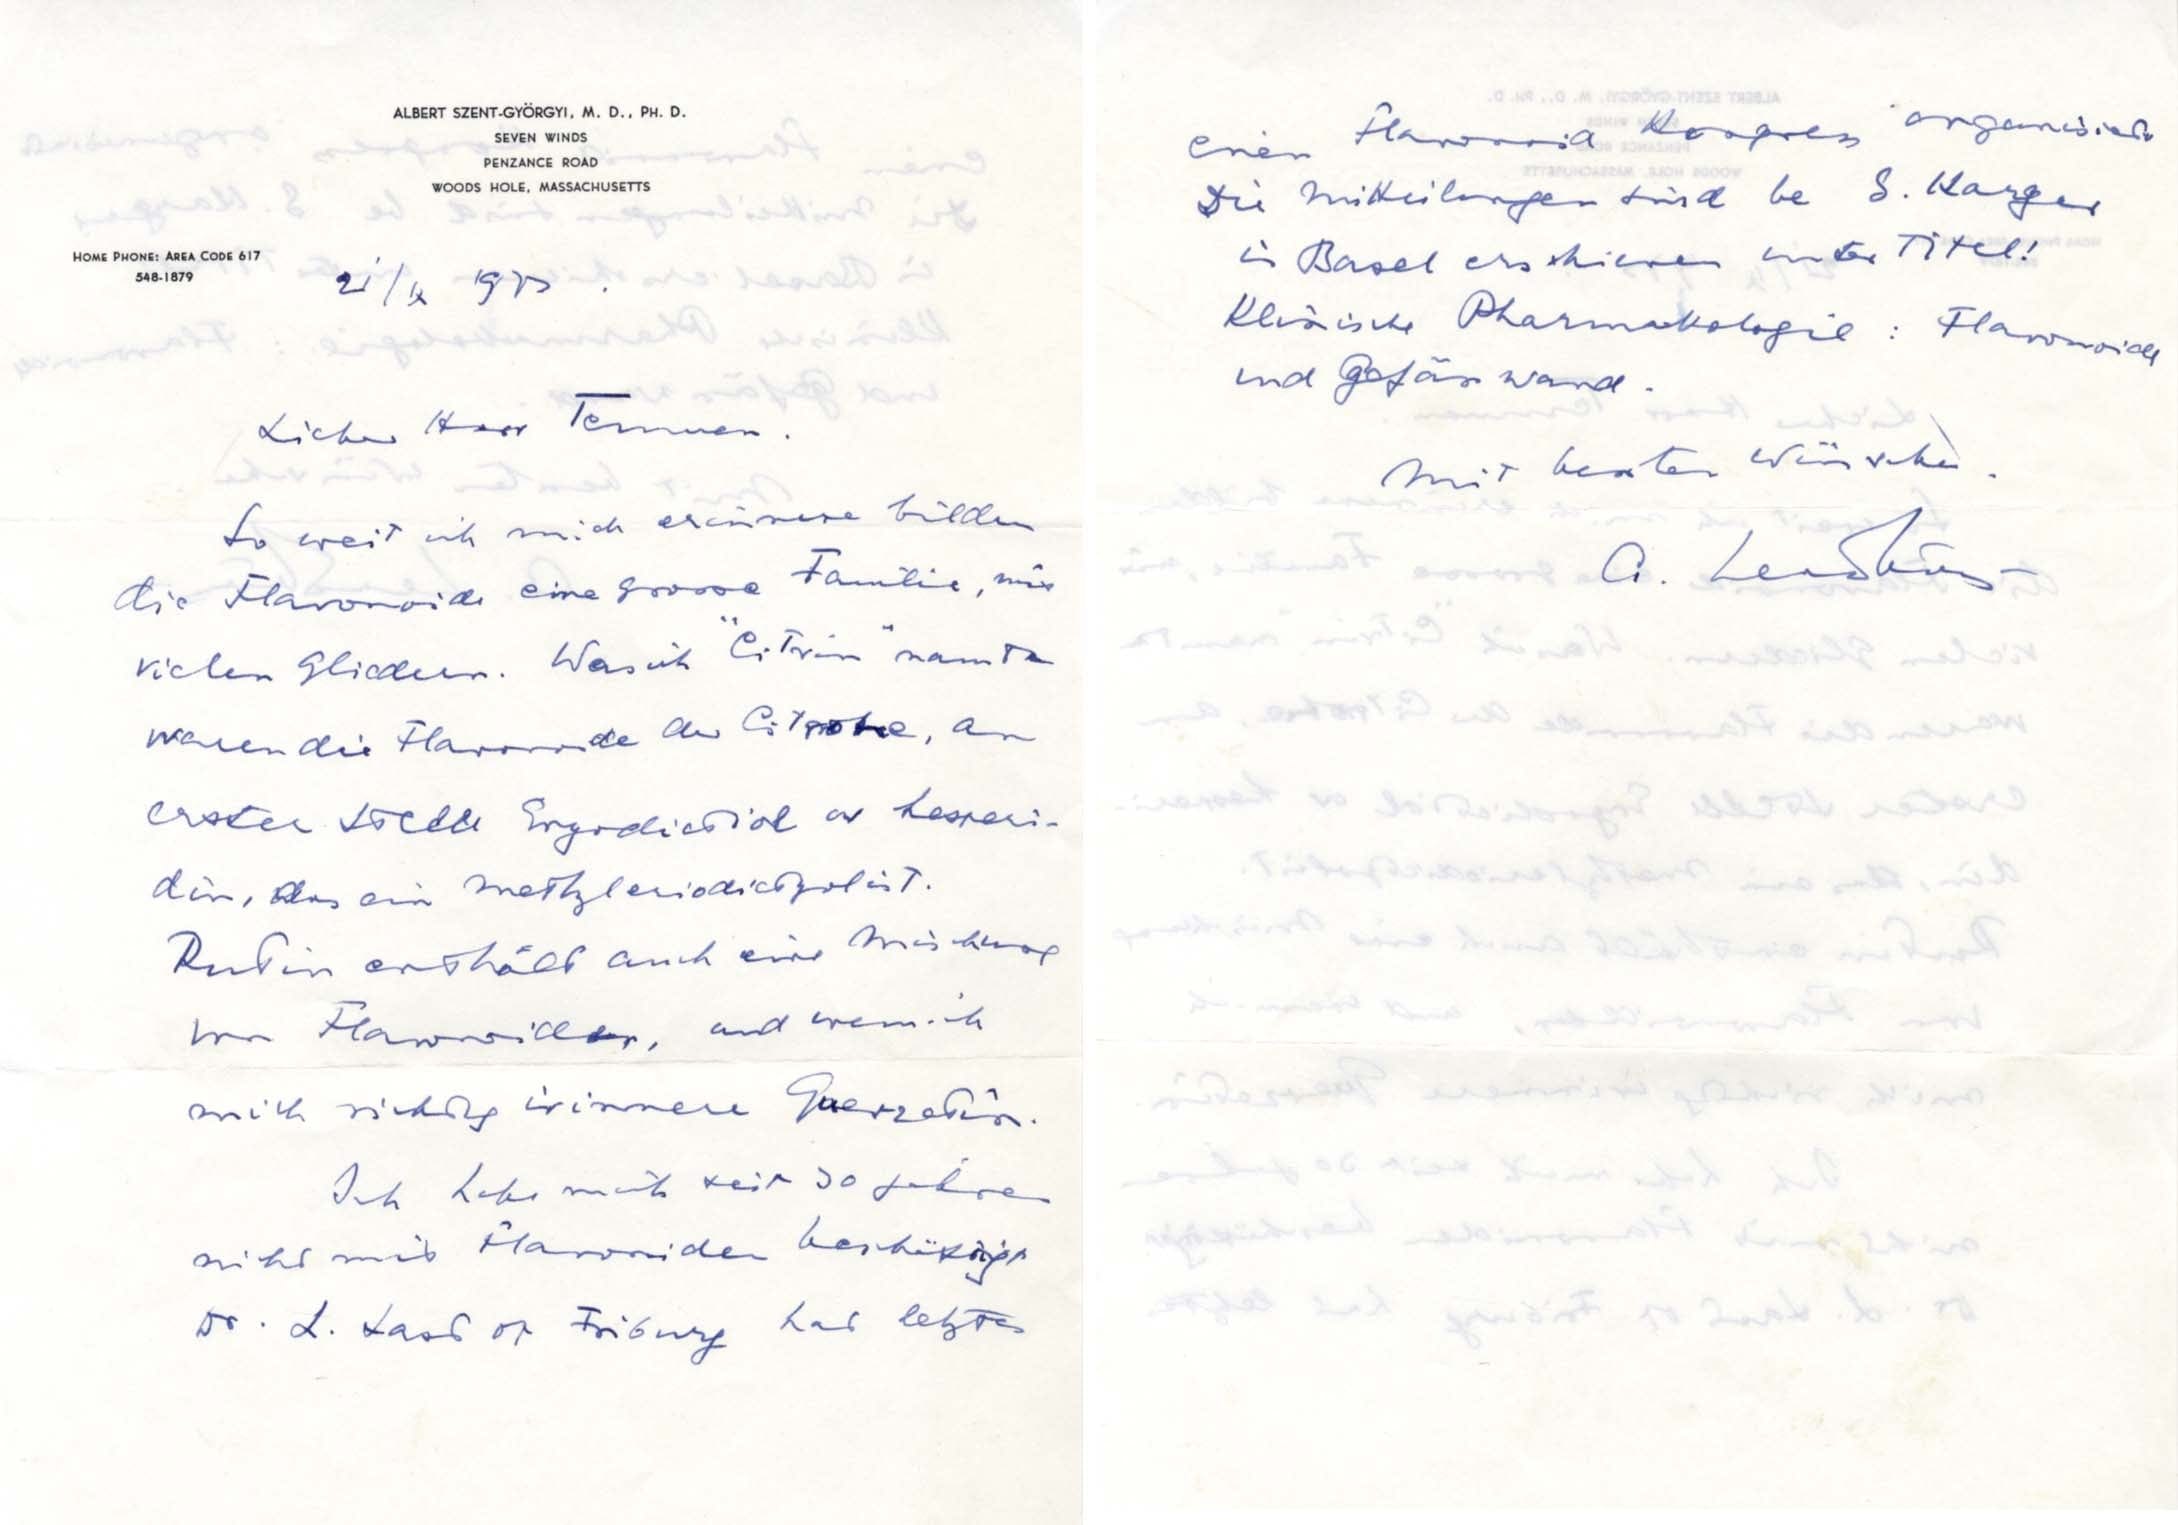 ALBERT SZENT-GYÖRGYI, M. D., PH. D.
SEVEN WINDS
PENZANCE ROAD
WOODS HOLE, MASSACHUSETTS
HOME PHONE: AREA CODE 617
548-1879
21/IX 1975.
Lieber Herr
So weit ich mich erinnere bilden
die Flavonoide eine grosse Familie, mit
vielen Gliedern. Was ich "Citrin" nannte
waren die Flavonoide der an
erster Stelle Hesperi-
din, das ein Methyleriodictyol ist.
Rutin enthält auch eine Mischung
von Flavonoiden, und wenn ich
mich richtig irinnere Querzetin.
Ich habe mich seit 30 Jahren
nicht mit Flavoniden beschäftigt
Dr. L. of Friburg hat letztes
einen Flavonoid Kongress organisiert
Die Mitteilungen sind be S. Karger
in Basel erschienen unter Titel!
Klinische Pharmakologie: Flavonoide
und Gefässwand.
Mit besten Wünschen.
A. Szent-Györgyi